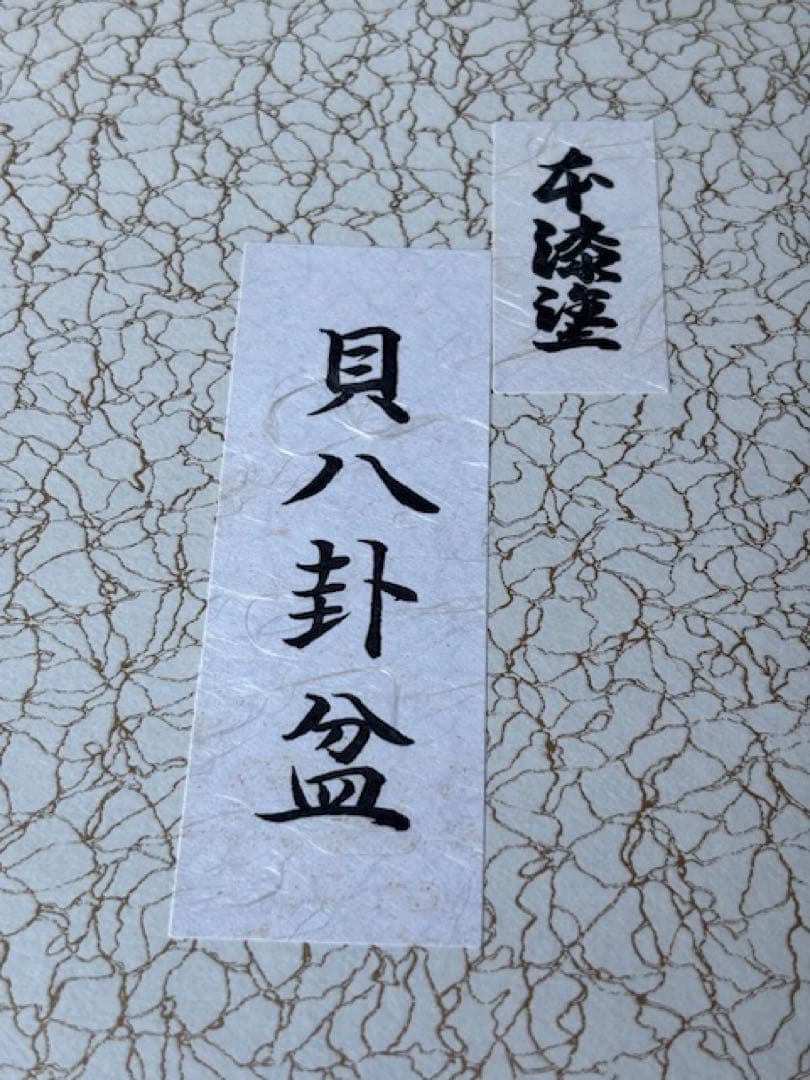 本漆塗
貝八卦盆